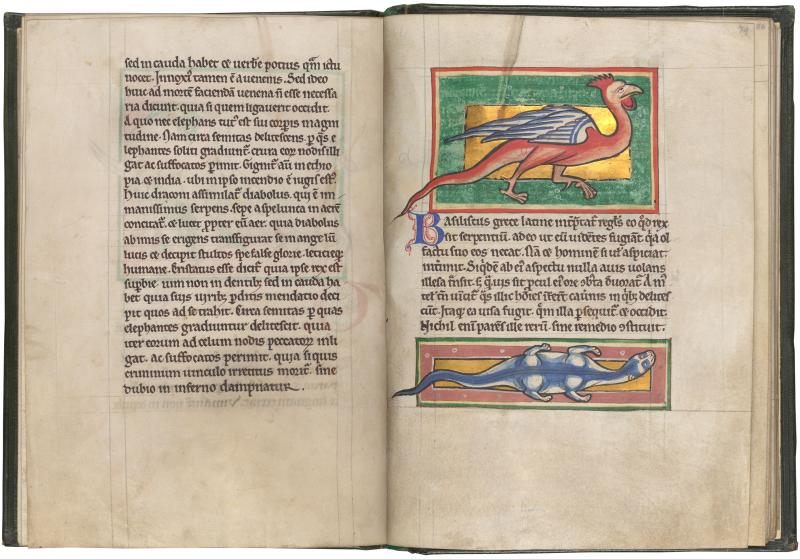 sed in cauda habet & uerbe potius qm̄ ictu
nocet. Innoxi᷒ tamen ē a uenenis. Sed ideo
huic ad mortē faciendā uenena ñ esse necessa
ria dicunt. quia si quem ligauerit occidit.
A quo nec elephans tut᷒ est sui corꝑis magni
tudine. Nam circa semitas delitescens ꝑ q̄s e
lephantes soliti gradiunt᷑. crura eoꝝ nodis illi
gat ac suffocatos ꝑimit. Gignit᷑ aut̄ in ethio
pia. & india. ubi in ipso incendio ē iugis est᷒.
Huic draconi assimilat᷑ diabolus. qui ē im
manissimus serpens. sepe a spelunca in aerē
concitat᷑. & lucet ꝓpter eū aer. quia diabolus
ab imis se erigens transfigurat se in angelū
lucis & decipit stultos spe false glorie. leticieq;
humane. Cristatus esse dicit᷑ quia ipse rex est
suꝑbie. uim non in dentib; sed in cauda ha
bet quia suis uirib; ꝑditis mendatio deci
pit quos ad se trahit. Circa semitas ꝑ quas
elephantes gradiuntur delitescit. quia
iter eorum ad celum nodis peccatoꝝ illi
gat. ac suffocatos perimit. quia si quis
criminum uinculo irretitus morit᷑. sine
dubio in inferno dampnatur.
Basiliscus grece latine int̄p̄tat᷑ regul᷒ eo qd̄ rex
sit serpentiū. adeo ut eū uidentes fugiant. quia ol
factu suo eos necat. Nā & hominē si uel aspiciat
intimit. Siqͥdē ab ei᷒ aspectu nulla auis uolans
illesa t̄nsit. s; quis sit ꝓcul ei᷒ ore ↄbusta deuorat᷑. A m᷒
telis tn̄ uincit᷑ qͣs illic hoīes īferūt cauernis in qͥb; delites
cūt. Itaq; ea uisa fugit. qm̄ illa ꝑsequit᷑ & occidit.
Nichil enī parēs ille rerū. sine remedio ↄstituit.